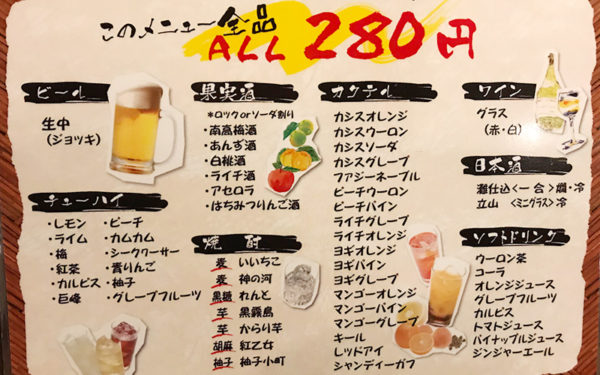 このメニュー全品
ALL 280円
ビール
生中
(ジョッキ)
チューハイ
・レモン ・ピーチ
・ライム ・カムカム
・梅 ・シークワーサー
・紅茶 ・青りんご
・カルピス ・柚子
・巨峰 ・グレープフルーツ
果実酒
*ロックorソーダ割り
・南高梅酒
・あんず酒
・白桃酒
・ライチ酒
・アセロラ
・はちみつりんご酒
焼酎
麦 いいちこ
麦 神の河
黒糖 れんと
芋 黒霧島
芋 からり芋
胡麻 紅乙女
柚子 柚子小町
カクテル
カシスオレンジ
カシスウーロン
カシスソーダ
カシスグレープ
ファジーネーブル
ピーチウーロン
ピーチパイン
ライチグレープ
ライチオレンジ
ヨギオレンジ
ヨギパイン
ヨギグレープ
マンゴーオレンジ
マンゴーパイン
マンゴーグレープ
キール
レッドアイ
シャンディーガフ
ワイン
グラス
(赤・白)
日本酒
灘仕込<一合>燗・冷
立山 <ミニグラス>冷
ソフトドリンク
ウーロン茶
コーラ
オレンジジュース
グレープフルーツ
カルピス
トマトジュース
パイナップルジュース
ジンジャーエール